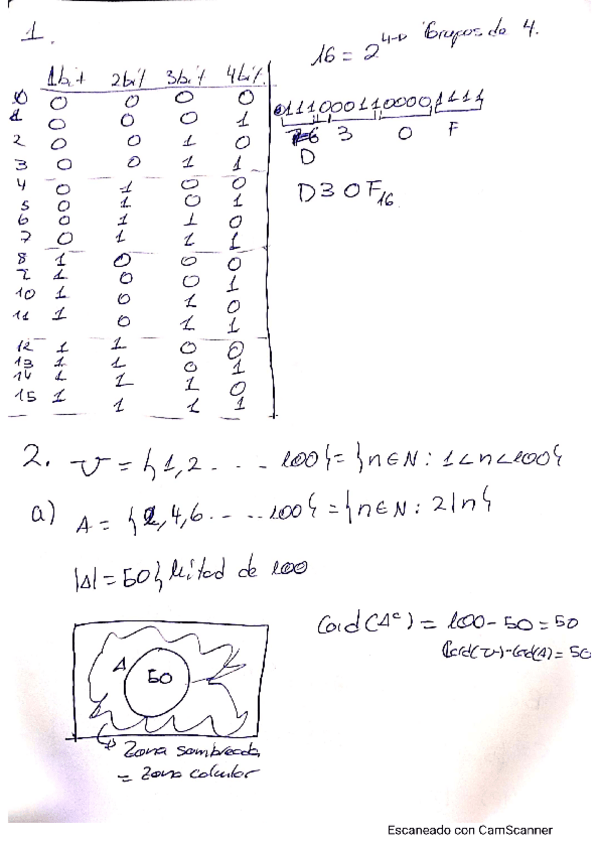 1.
16 = 2^4 → Grupos de 4.
1bit 2bit 3bit 4bit
0 0 0 0 0
1 0 0 0 1
2 0 0 1 0
3 0 0 1 1
4 0 1 0 0
5 0 1 0 1
6 0 1 1 0
7 0 1 1 1
8 1 0 0 0
9 1 0 0 1
10 1 0 1 0
11 1 0 1 1
12 1 1 0 0
13 1 1 0 1
14 1 1 1 0
15 1 1 1 1
0111000110000,1111
3 0 F
D
D30F₁₆
2. U = {1,2 . . . . 100} = {n∈N : 1<n<100}
a) A = {2,4,6 . . . . . 100} = {n∈N : 2|n}
|A| = 50} Mitad de 100
Card(Aᶜ) = 100 - 50 = 50
Card(U)-Card(A) = 50
A
50
↳ Zona sombreada
= Zona calcular
Escaneado con CamScanner